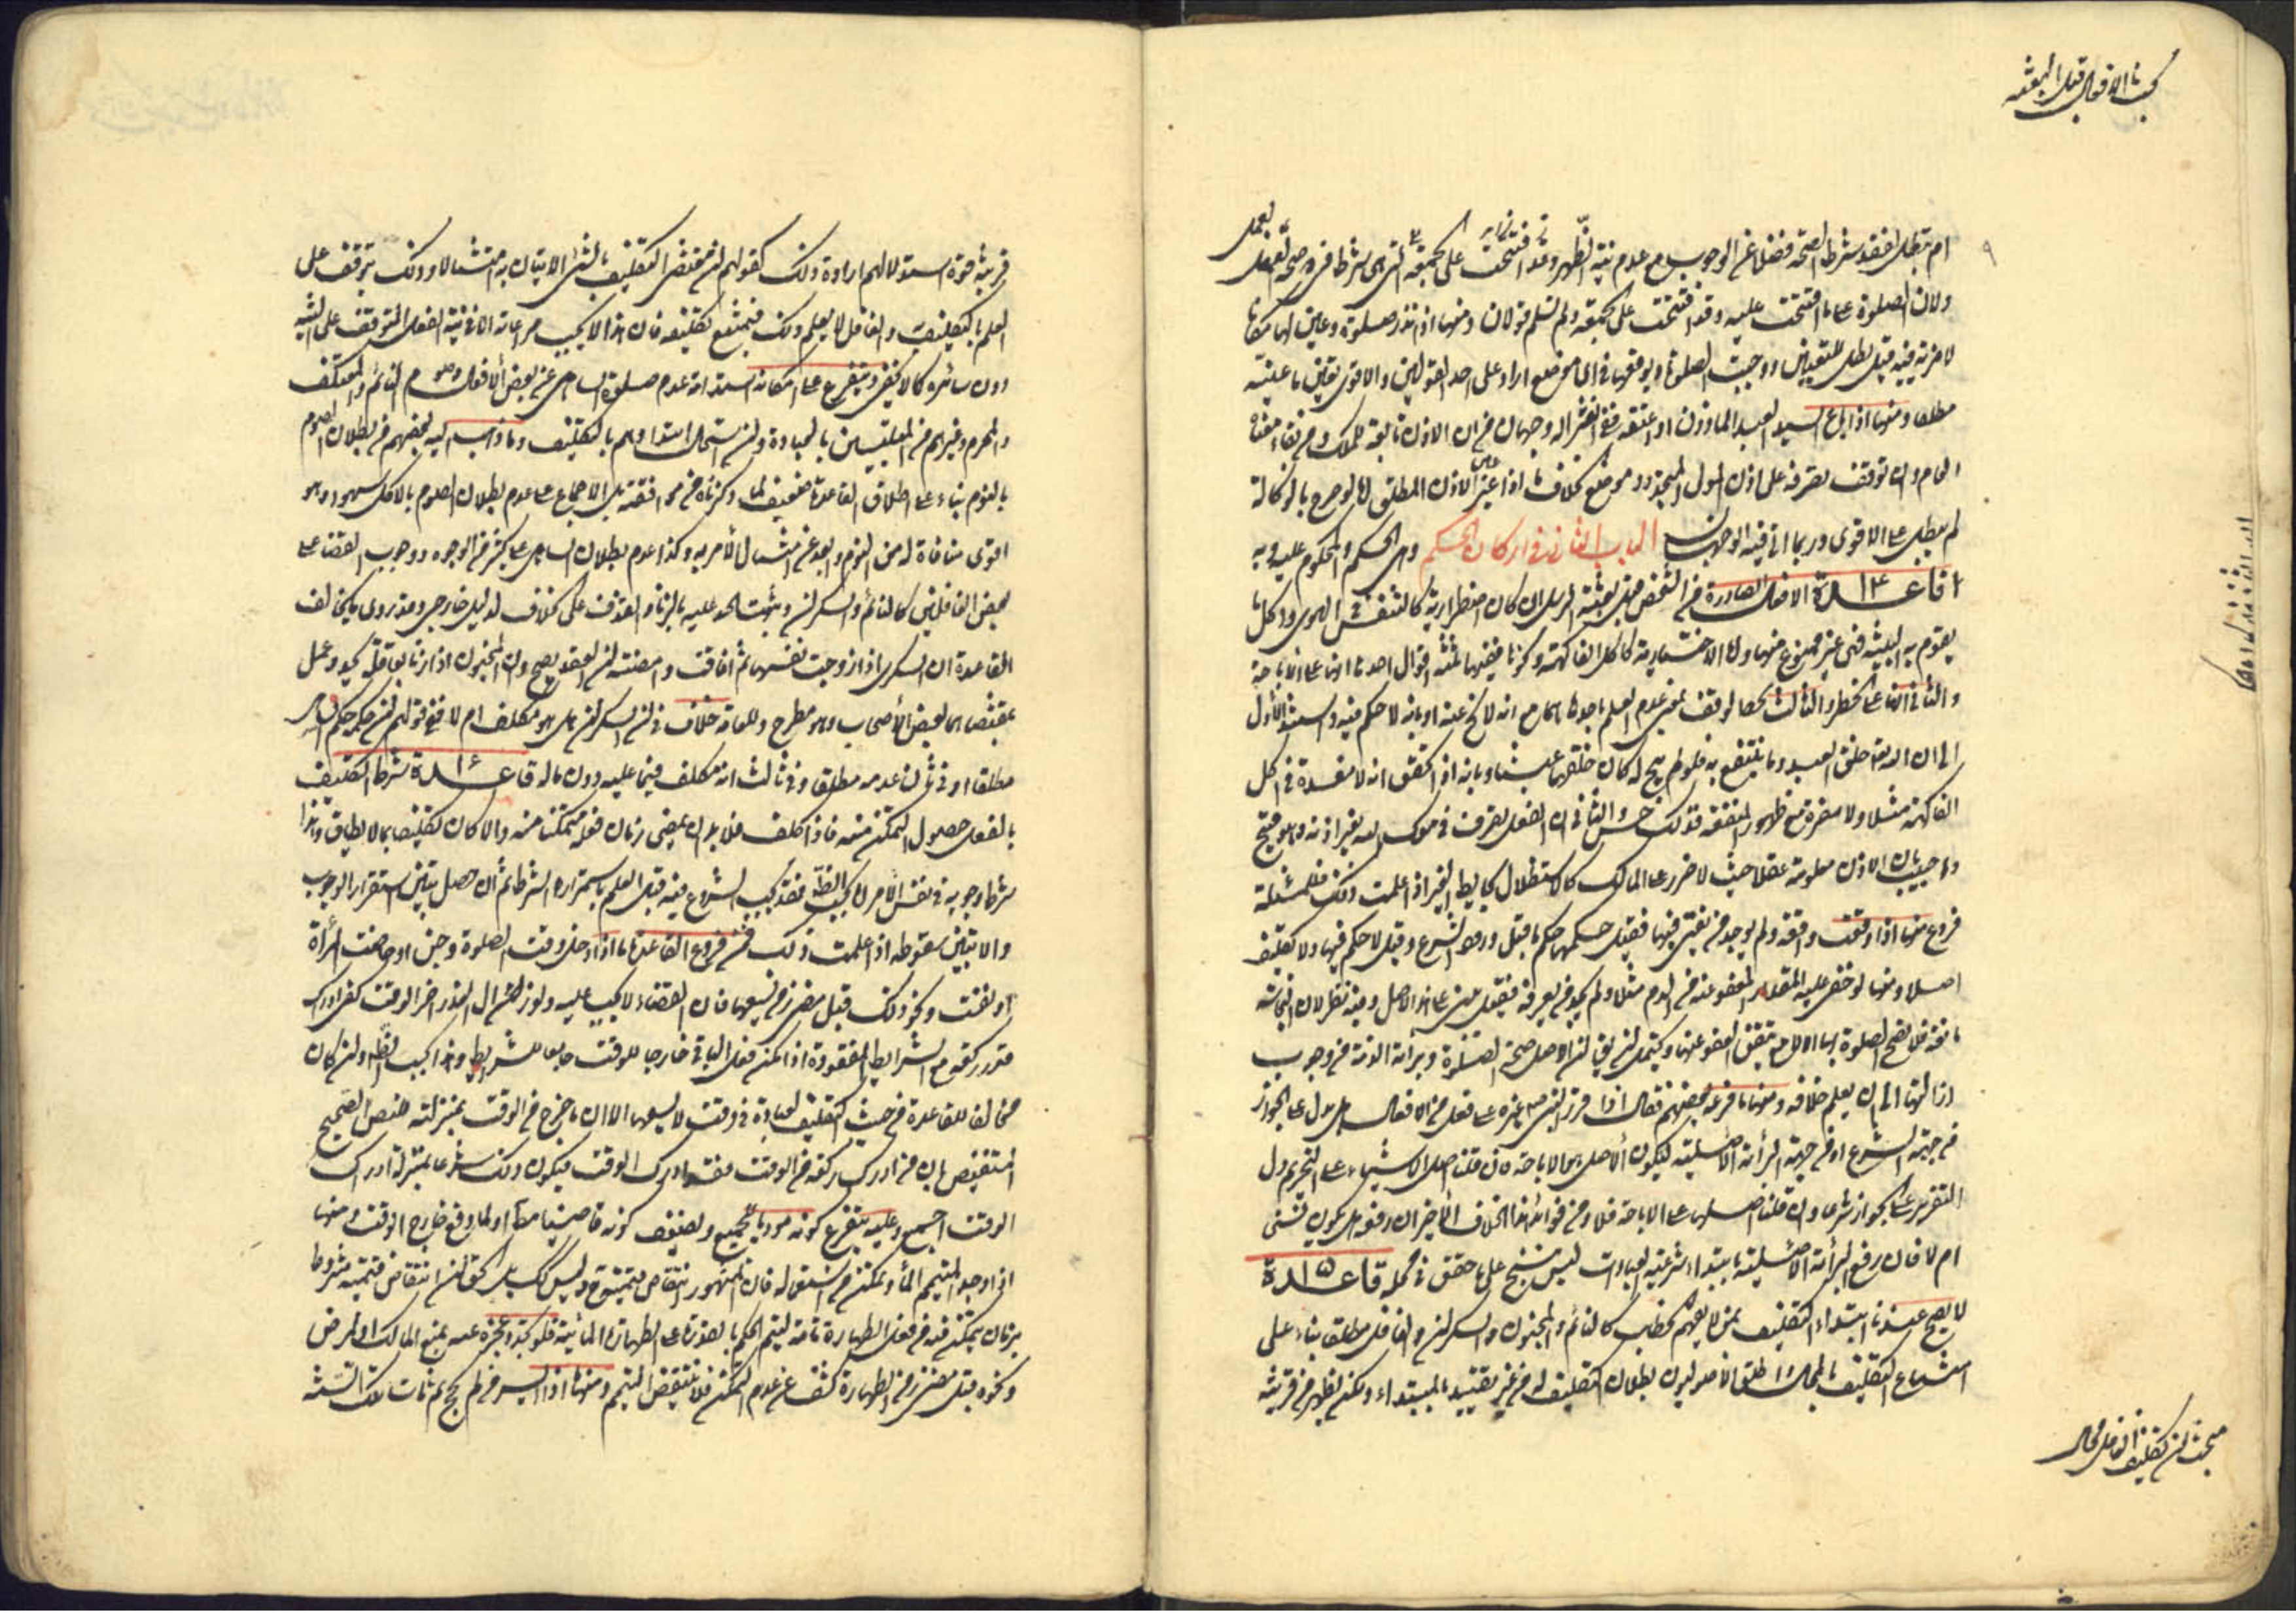 بحث الافعال قبل البعثة
ام تبطل لفقد شرط الصحة فضلا عن الوجوب مع عدم نية الظهر وقد افتتحت على الجمعة التي هي شرط في صحة
ولان الصلوة على ما افتتحت عليه وقد افتتحت على الجمعة ولم تسلم قولان ومنها اذا نذر صلوة وعين لها مكانا
لا مزية فيه قيل بطل التعيين ووجبت الصلوة ويوقعها في اي موضع اراد على احد القولين والاقوى تعين ما عينه
مطلقا ومنها اذا باع السيد العبد الماذون او اعتقه ففي انعزاله وجهان من ان الاذن تابعة للملك ومن بقاء معناه
العام وان توقف تصرفه على اذن المولى المتجدد في موضع بخلاف ما اذا غير الاذن المطلق كما لو صرح بالوكالة
لم يبطل على الاقوى وربما اتى فيه الوجهان الباب الثاني في اركان الحكم وهي الحكم والمحكوم عليه وبه
قاعدة ١٤ الافعال الصادرة من الشخص قبل بعثة الرسل ان كان اضطرارية كالتنفس في الهوى واكل ما
يقوم به البنية فهي غير ممنوع منها واما الاختيارية كاكل الفاكهة وكونها ففيها ثلثة اقوال احدها انها على الاباحة
والثاني انها على الحظر والثالث الوقف بمعنى عدم العلم باحدهما مع انه لا يخ عنه او بانه لا حكم فيه واستدل الاول
الى ان الله تعالى خلق العبيد وما ينتفع به فلو لم يبح له كان خلقهما عبثا وبانه اذا تحقق انه لا مفسدة في اكل
الفاكهة مثلا ولا مضرة مع ظهور المنفعة فذلك حسن والثاني ان الفعل تصرف في ملك الله بغير اذنه وهو قبيح
واجيب بان الاذن معلومة عقلا حيث لا ضرر على المالك كالاستظلال بحايط الغير اذا علمت ذلك فللمسئلة
فروع منها اذا وقعت واقعة ولم يوجد من يفتي فيها فقيل حكمها حكم ما قبل ورود الشرع وقيل لا حكم فيها ولا تكليف
اصلا ومنها لو خفي عليه المقدار المعفو عنه من الدم مثلا ولم يجد من يعرفه فيقول على هذا الاصل وفيه نظر لان النجاسة
مانعة فلا تصح الصلوة بها الا مع تحقق العفو عنها ويحتمل ان يق ان الاصل صحة الصلوة وبرائة الذمة من وجوب
ازالتها الى ان يعلم خلافه ومنها ما فرعه بعضهم فقال اذا قرر النبي ص غيره على فعل من الافعال هل يدل على الجواز
من جهة الشرع او من جهة البرائة الاصلية فيكون الاصل هو الاباحة فان قلنا اصل الاشياء على التحريم دل
التقرير على الجواز شرعا وان قلنا اصلها على الاباحة فلا ومن فوائد هذا الخلاف الاخير ان رفعه هل يكون نسخا
ام لا فان رفع البرائة الاصلية بابتداء شرعية العبادات ليس بنسخ على ما حقق في محله قاعدة ١٥
لا يصح عندنا ابتداء التكليف بمن لا يفهم الخطاب كالنائم والمجنون والسكران والغافل مطلقا بناء على
امتناع التكليف بالمحال واطلق الاصوليون بطلان التكليف له من غير تقييد بالمبتداء ولكن يظهر من قرينة
مبحث ان تكليف الغافل محال
قرينة صورة استدلالهم ارادة ذلك كقولهم ان مقتضى التكليف بالشئ الاتيان به امتثالا وذلك يتوقف على
العلم بالتكليف والغافل لا يعلم ذلك فيمتنع تكليفه فان هذا لا يجب مراعاته الا في نية الفعل المتوقف على النية
دون سائره كما لا يخفى ويتفرع على امكانه استدامة عدم صلوة الساهي عن بعض الافعال وصوم النائم والمعتكف
والمحرم وغيرهم من المتلبسين بالعبادة وان استحال ابتداؤهم بالتكليف وما ذهب اليه بعضهم من بطلان الصوم
بالنوم بناء على اطلاق القاعدة ضعيف لما ذكرناه من موافقته بل الاجماع على عدم بطلان الصوم بالاكل سهوا وهو
اقوى منافاة له من النوم وابعد عن امتثال الامر به وكذا عدم بطلان الساهي على كثير من الوجوه ووجوب القضاء على
بعض الغافلين كالنائم والسكران وثبوت الحد عليه بالزنا والقذف على خلاف لدليل خارجي وقد روى ما يخالف
القاعدة ان السكرى اذا زوجت نفسها ثم افاقت وامضته ان العقد يصح وان المجنون اذا زنا بعاقلة يحد وعمل
بمقتضاهما بعض الاصحاب وهو مطرح وللعامة خلاف في ان السكران هل هو مكلف ام لا ففي قول لهم ان حكمه حكم الصاحي
مطلقا وفي ثان عدمه مطلقا وفي ثالث انه مكلف فيما عليه دون ماله قاعدة ١٦ شرط التكليف
بالفعل حصول التمكن منه فاذا كلف فلا بد ان يمضي زمان فعله متمكنا منه والا كان تكليفا بما لا يطاق وهذا
شرط وجوبه في نفس الامر لا بحسب الظاهر فقد يجب الشروع فيه قبل العلم باستمراره الشرط ثم ان حصل تبين استقرار الوجوب
والا تبين سقوطه اذا علمت ذلك فمن فروع القاعدة ما اذا دخل وقت الصلوة وجن او حاضت المرأة
او نفست ونحو ذلك قبل مضي زمن يسعها فان القضاء لا يجب عليه ولو زال العذر اخر الوقت كفى ادراك
قدر ركعة مع الشرايط المفقودة اذا امكن فعل الباقي خارجا للوقت جامعا للشرايط وهذا بحسب الظاهر وان كان
مخالفا للقاعدة من حيث التكليف بعبادة في وقت لا يسعها الا ان ما خرج من الوقت بمنزلته للنص الصحيح
المستفيض بان من ادرك ركعة من الوقت فقد ادرك الوقت فيكون ذلك شرعا بمنزلة ادراك
الوقت اجمع وعليه يتفرع كونه موديا للجميع ولضعيف كونه قاضيا مطلقا او لما وقع خارج الوقت ومنها
اذا وجد المتيمم الماء وتمكن من استعماله فان المشهور انتقاض تيممه وليس كك بل الحق ان انتقاض تيممه مشروط
بزمان يتمكن فيه من فعل الطهارة تامة ليتم الحكم بالقدرة على الطهارة المائية فلو تجدد عجزه عنه بمنع المالك او لمرض
ونحوه قبل مضي زمن الطهارة كشف عن عدم التمكن فلا ينتقض التيمم ومنها اذا ايسر فلم يحج ثم مات تلك السنة